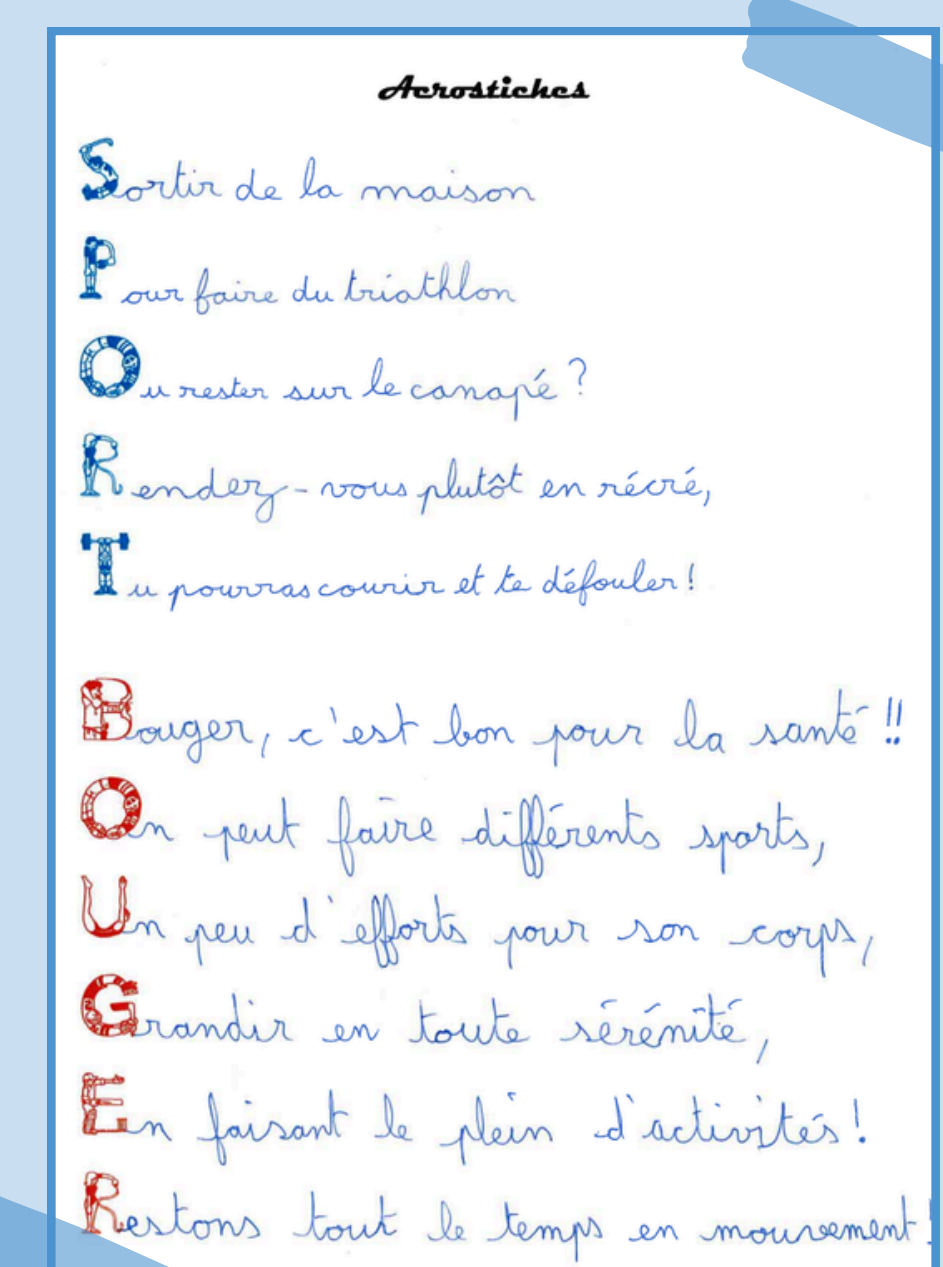 Acrostiches
Sortir de la maison
Pour faire du triathlon
Ou rester sur le canapé ?
Rendez-vous plutôt en récré,
Tu pourras courir et te défouler !
Bouger, c'est bon pour la santé !!
On peut faire différents sports,
Un peu d'efforts pour son corps,
Grandir en toute sérénité,
En faisant le plein d'activités !
Restons tout le temps en mouvement !